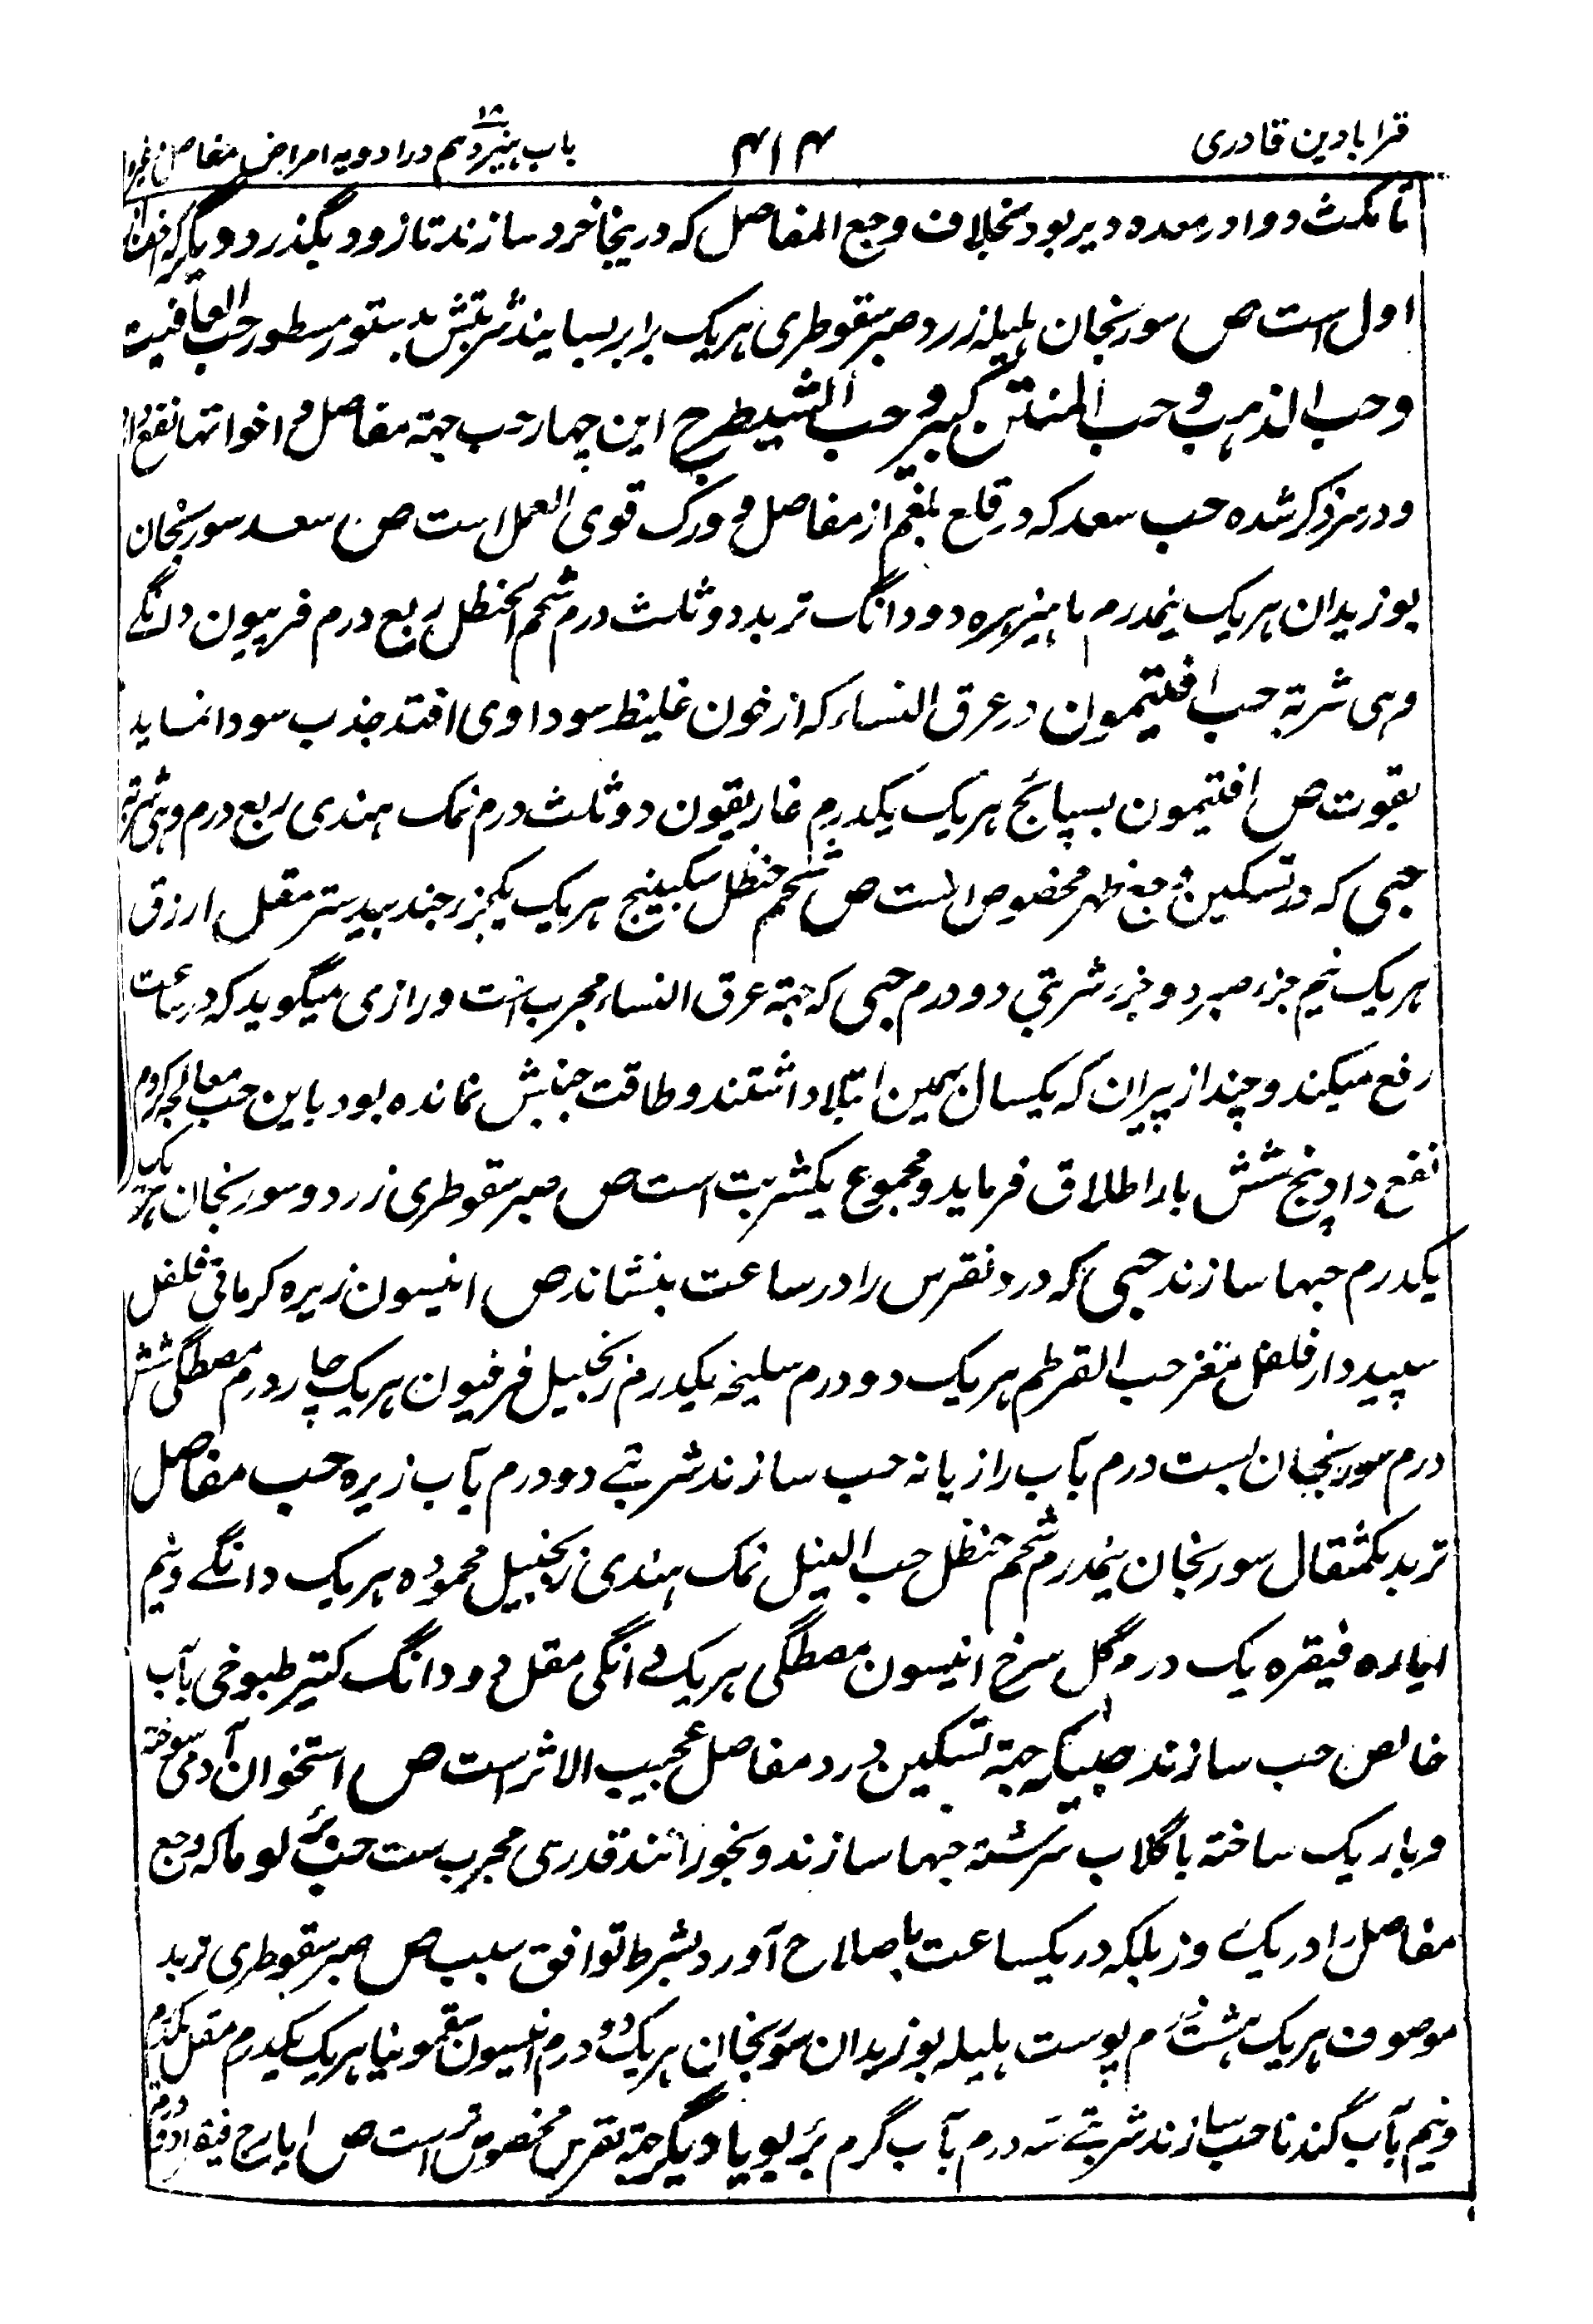 قرابادین قادری
۴۱۴
باب هیزدهم در ادویه امراض مفاصل
تا مکث دوا در معده دیر بود بخلاف وجع المفاصل که درینجا خرد سازند تا زود بگذرد دیگر که
اول است ص سورنجان هلیله زرد صبر سقوطری هر یک برابر بسایند شربتش بدستور مسطور حب العافیت
و حب الذهب و حب المنتن کبیر و حب الشیطرج این چهار حب جهته مفاصل و اخواتها نفع
و در سر ذکر شده حب سعد که در قلع بلغم از مفاصل و ورک قوی العمل است ص سعد سورنجان
بوزیدان هر یک نیمدرم ماهیزهره دو دانگ تربد دو ثلث درم شحم الحنظل ربع درم فربیون دانگے
و هی شربة حب افتیمون در عرق النساء که از خون غلیظ سوداوی افتد جذب سودا نماید
بقوت ص افتیمون بسپائج هر یک یکدرم غاریقون دو ثلث درم نمک هندی ربع درم و هی شربة
حبی که در تسکین وجع ظهر مخصوص است ص شحم حنظل سکبینج هر یک یکجزء جند بیدستر مقل ارزق
هر یک نیم جزء صبر دو جزء شربتی دو درم حبی که جهته عرق النساء مجرب است و رازی میگوید که در ساعت
رفع میکند و چند از پیران که یکسال بهمین ابتلا داشتند و طاقت جنبش نمانده بود باین حب معالجه کردم
نفع داد پنج شش بار اطلاق فرماید و مجموع یکشربت است ص صبر سقوطری زرد و سورنجان هر یک
یکدرم حبها سازند حبی که درد نقرس را در ساعت بنشاند ص انیسون زیره کرمانی فلفل
سپید دارفلفل مغز حب القرطم هر یک دو درم سلیخه یکدرم زنجبیل فرفیون هر یک چار درم مصطگی شش
درم سورنجان بست درم بآب رازیانه حب سازند شربتے دو درم بآب زیره حب مفاصل
تربد یکمثقال سورنجان نیمدرم شحم حنظل حب النیل نمک هندی زنجبیل محموده هر یک دانگے و نیم
ایاره فیقره یک درم گل سرخ انیسون مصطگی هر یک دانگی مقل دو دانگ کتیر طبوخی بآب
خالص حب سازند حبیکه جهته تسکین درد مفاصل عجیب الاثر است ص استخوان آدمی سوخته
و باریک ساخته با گلاب سرشته حبها سازند و بخورانند قدری مجرب ست حب لوما که وجع
مفاصل را در یک روز بلکه در یکساعت باصلاح آورد بشرط توافق سبب ص صبر سقوطری تربد
موصوف هر یک هشت درم پوست هلیله بوزیدان سورنجان هر یک دو درم انیسون سقمونیا هر یک یکدرم مقل یکدرم
و نیم بآب گندنا حب سازند شربتے سه درم بآب گرم دیگر جهته نقرس مخصوص است ص ایارج فیقرا